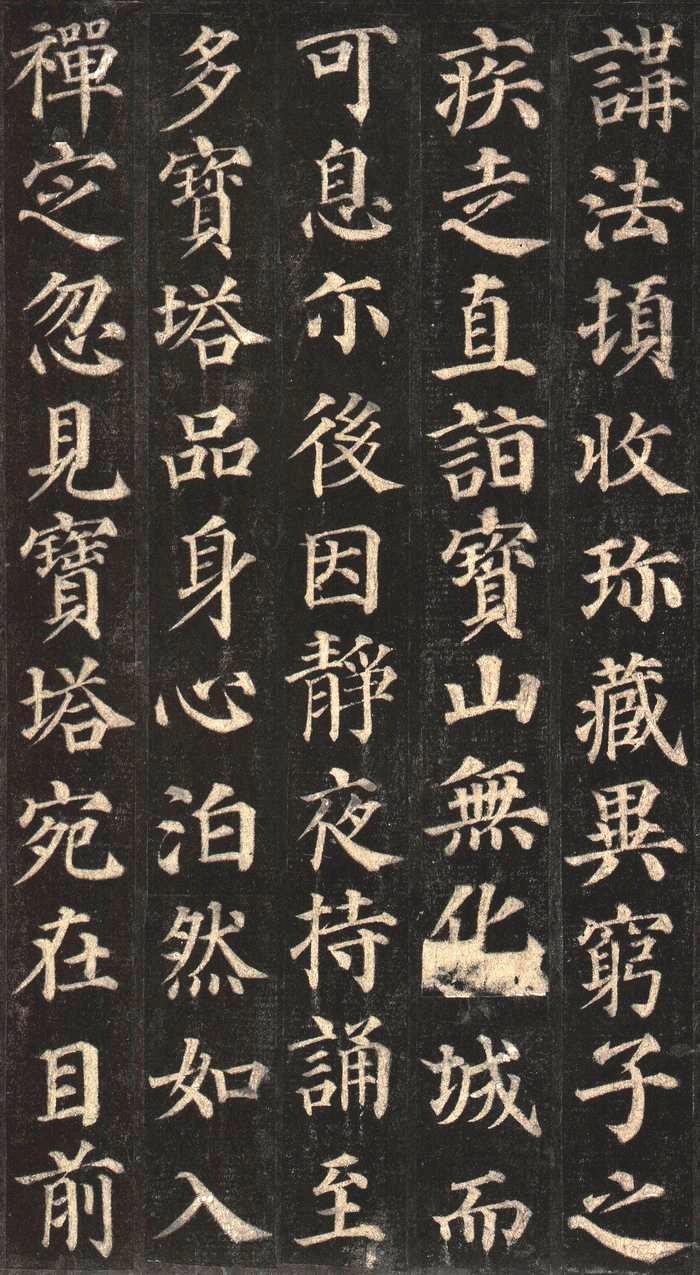 講法頓收珎藏異窮子之
疾走直詣寶山無化城而
可息尔後因靜夜持誦至
多寶塔品身心泊然如入
禪定忽見寶塔宛在目前